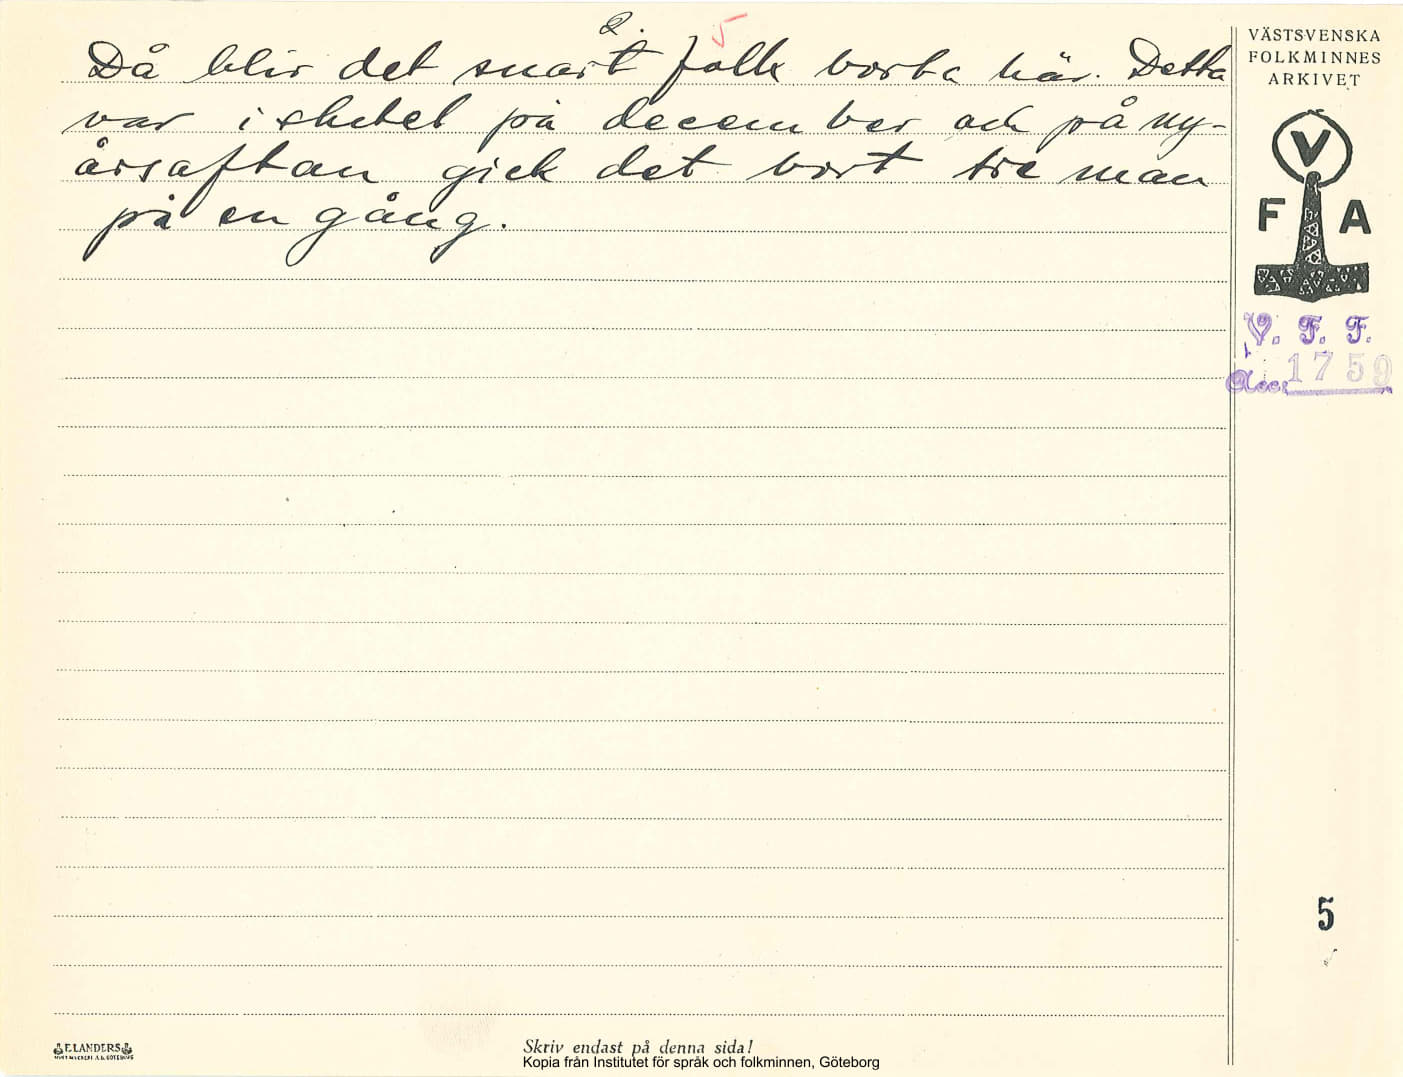 2.
5
Då blir det snart folk borta här. Detta
var i slutet på december och på ny-
årsaftan gick det bort tre man
på en gång.
VÄSTSVENSKA
FOLKMINNES
ARKIVET
V
F A
V. F. F.
Acc: 1759
5
ELANDERS
Skriv endast på denna sida!
Kopia från Institutet för språk och folkminnen, Göteborg